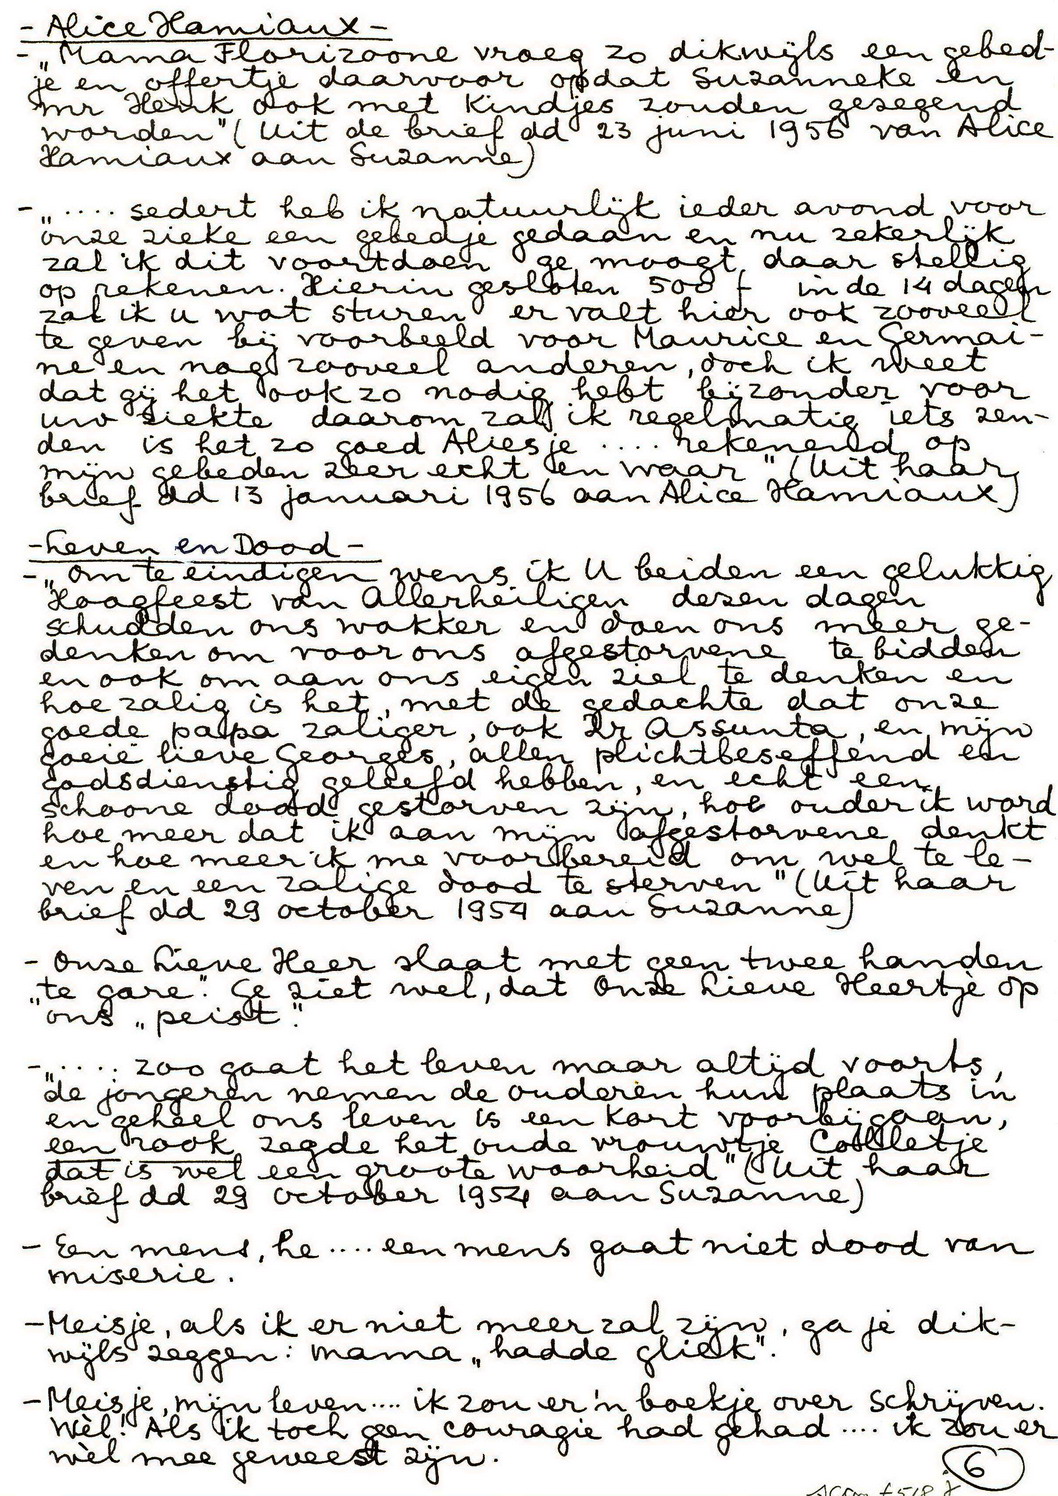 - Alice Hamiaux -
- „Mama Florizoone vroeg zo dikwijls een gebed-
je en offertje daarvoor opdat Suzanneke en
mr Henk ook met kindjes zouden gezegend
worden" (Uit de brief dd 23 juni 1956 van Alice
Hamiaux aan Suzanne)
- „.... sedert heb ik natuurlijk ieder avond voor
onze zieke een gebedje gedaan en nu zekerlijk
zal ik dit voortdoen ge moogt daar stellig
op rekenen. Hierin gesloten 500 f in de 14 dagen
zal ik u wat sturen er valt hier ook zooveel
te geven bij voorbeeld voor Maurice en Germai-
ne en nog zooveel anderen, doch ik weet
dat gij het ook zo nodig hebt bijzonder voor
uw ziekte daarom zal ik regelmatig iets zen-
den is het zo goed Aliesje .... rekenend op
mijn gebeden zeer echt en waar" (Uit haar
brief dd 13 januari 1956 aan Alice Hamiaux)
- Leven en Dood -
- „Om te eindigen wens ik U beiden een gelukkig
Hoogfeest van Allerheiligen dezen dagen
schudden ons wakker en doen ons meer ge-
denken om voor ons afgestorvene te bidden
en ook om aan ons eigen ziel te denken en
hoe zalig is het, met de gedachte dat onze
goede papa zaliger, ook Zr Assunta, en mijn
goeie lieve Georges, allen plichtbeseffend en
godsdienstig geleefd hebben, en echt een
schoone dood gestorven zijn, hoe ouder ik word
hoe meer dat ik aan mijn afgestorvene denkt
en hoe meer ik me voorbereid om wel te le-
ven en een zalige dood te sterven" (Uit haar
brief dd 29 october 1954 aan Suzanne)
- Onze Lieve Heer slaat met geen twee handen
„te gare". Ge ziet wel, dat Onze Lieve Heertje op
ons „peist".
- „.... zoo gaat het leven maar altijd voorts,
de jongeren nemen de ouderen hun plaats in
en geheel ons leven is een kort voorbijgaan,
een rook zegde het oude vrouwtje Colletje
dat is wel een groote waarheid" (Uit haar
brief dd 29 october 1954 aan Suzanne)
- Een mens, he .... een mens gaat niet dood van
miserie.
- Meisje, als ik er niet meer zal zijn, ga je dik-
wijls zeggen: mama „hadde gliek".
- Meisje, mijn leven .... ik zou er 'n boekje over schrijven.
Wèl! Als ik toch geen couragie had gehad .... ik zou er
wèl mee geweest zijn.
6